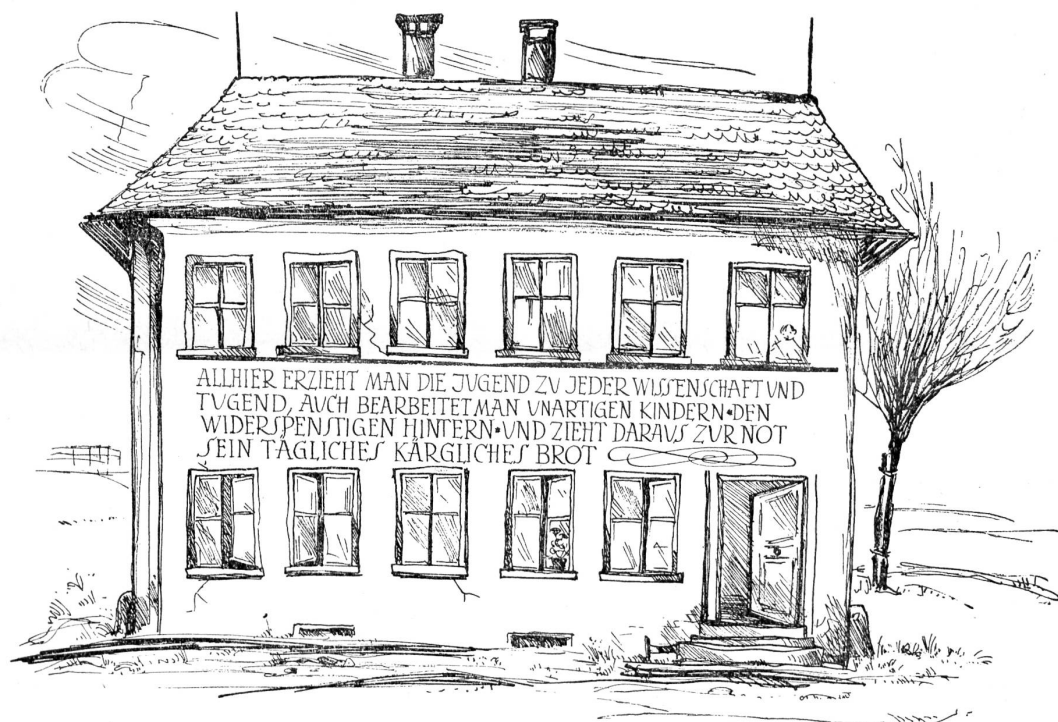 ALLHIER ERZIEHT MAN DIE JUGEND ZU JEDER WISSENSCHAFT UND
TUGEND, AUCH BEARBEITET MAN UNARTIGEN KINDERN•DEN
WIDERSPENSTIGEN HINTERN•UND ZIEHT DARAUS ZUR NOT
SEIN TÄGLICHES KÄRGLICHES BROT